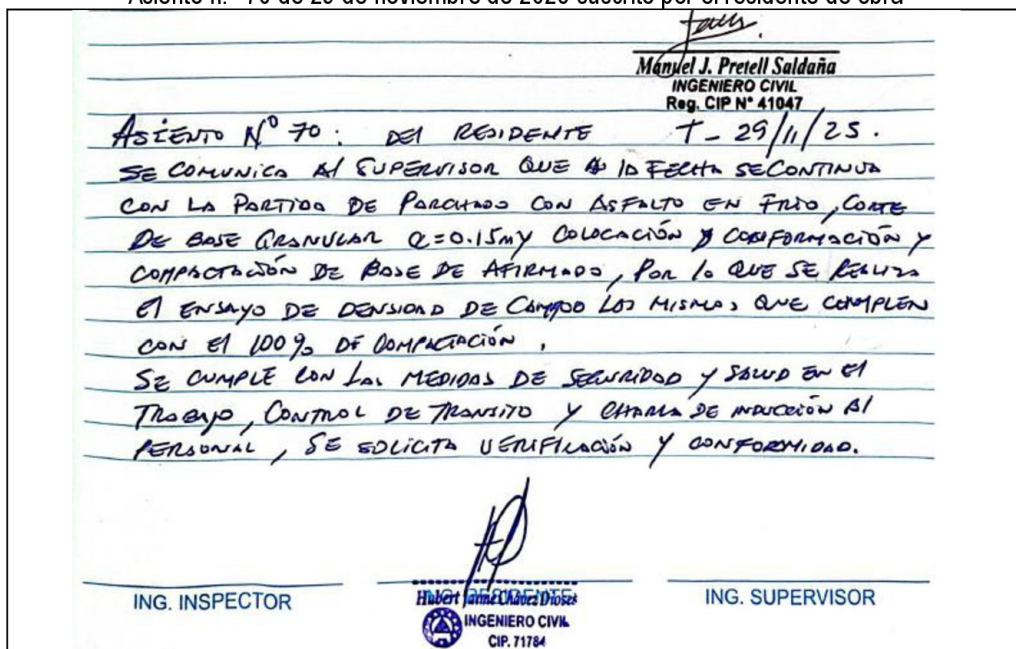 Asiento n.° 70 de 29 de noviembre de 2025 suscrito por el residente de obra
Manuel J. Pretell Saldaña
INGENIERO CIVIL
Reg. CIP N° 41047
ASIENTO N° 70: DEL RESIDENTE T- 29/11/25.
SE COMUNICA Al SUPERVISOR QUE A lA FECHA SE CONTINUA
CON LA PARTIDA DE PARCHADO CON ASFALTO EN FRIO, CORTE
DE BASE GRANULAR e=0.15m Y COLOCACIÓN Y CONFORMACIÓN Y
COMPACTACIÓN DE BASE DE AFIRMADO, POR lo QUE SE REALIZA
El ENSAYO DE DENSIDAD DE CAMPO LOS MISMOS QUE CUMPLEN
CON El 100% DE COMPACTACIÓN,
SE CUMPLE CON LAS MEDIDAS DE SEGURIDAD Y SALUD EN El
TRABAJO, CONTROL DE TRANSITO Y CHARLA DE INDUCCIÓN Al
PERSONAL, SE SOLICITA VERIFICACIÓN Y CONFORMIDAD.
ING. INSPECTOR
ING. RESIDENTE
Hubert Jaime Chávez Dioses
INGENIERO CIVIL
CIP. 71784
ING. SUPERVISOR